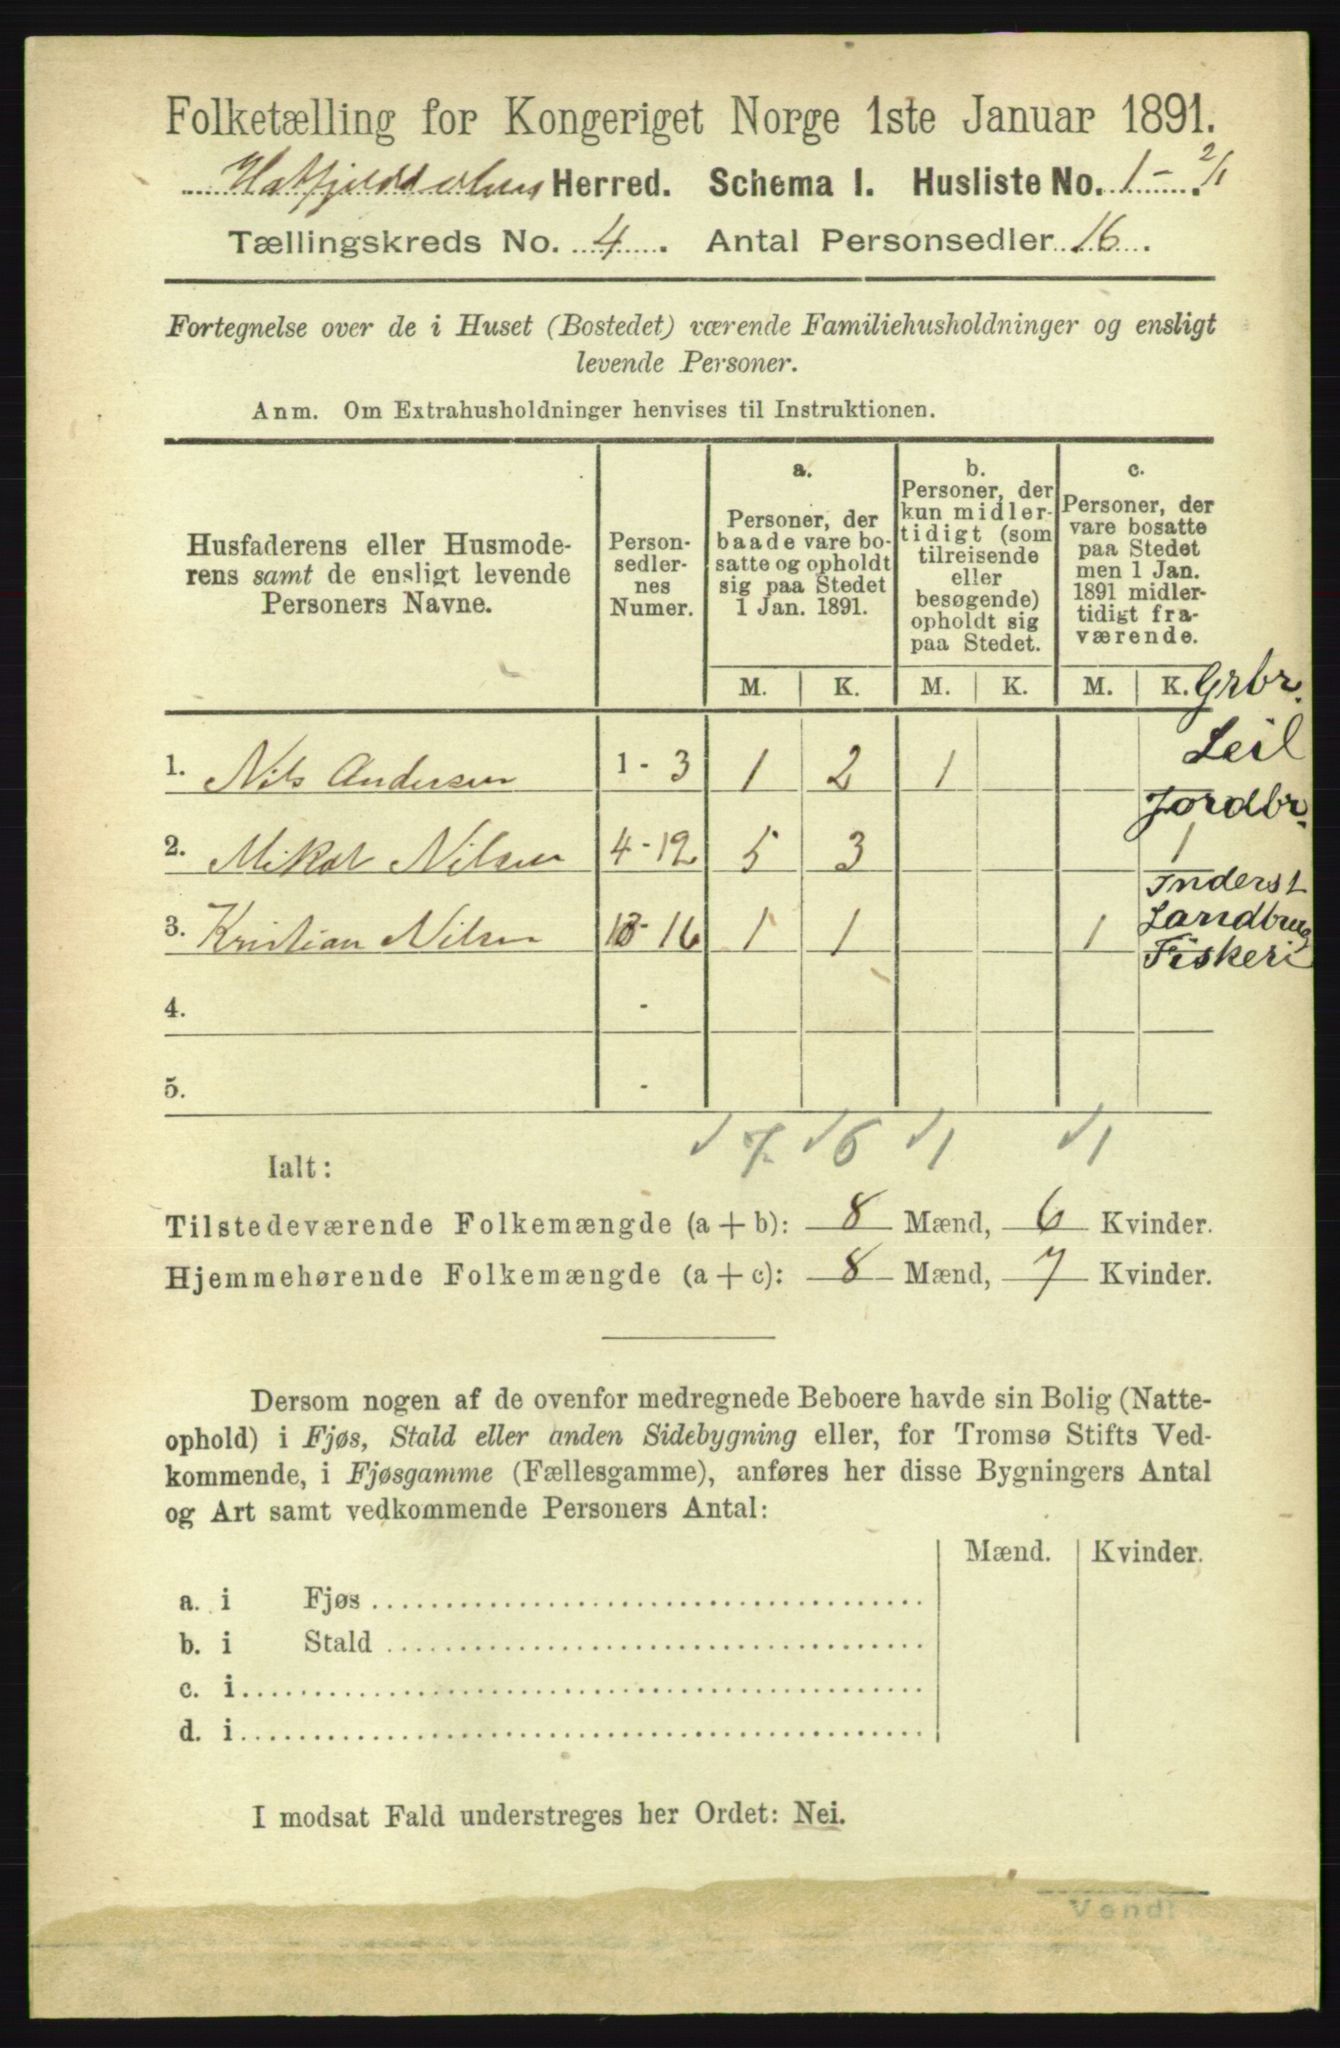 Folketælling for Kongeriget Norge 1ste Januar 1891.
Hatfjelddalens Herred. Schema I. Husliste No. 1 - 2/1
Tællingskreds No. 4. Antal Personsedler 16.
Fortegnelse over de i Huset (Bostedet) værende Familiehusholdninger og ensligt
levende Personer.
Anm. Om Extrahusholdninger henvises til Instruktionen.
Husfaderens eller Husmode-
rens samt de ensligt levende
Personers Navne.
Person-
sedler-
nes
Numer.
a.
Personer, der
baade vare bo-
satte og opholdt
sig paa Stedet
1 Jan. 1891.
b.
Personer, der
kun midler-
tidigt (som
tilreisende
eller
besøgende)
opholdt sig
paa Stedet.
c.
Personer, der
vare bosatte
paa Stedet
men 1 Jan.
1891 midler-
tidigt fra-
værende.
M. K. M. K. M. K. Grbr.
Leil
1. Nils Andersen 1 - 3 1 2 1
Jordbr.
2. Mikal Nilsen 4 - 12 5 3 1
Inderst
Landbrug
3. Kristian Nilsen 13 - 16 1 1 1
Fiskeri
4. -
5. -
7 6 1 1
Ialt:
Tilstedeværende Folkemængde (a + b): 8 Mænd, 6 Kvinder.
Hjemmehørende Folkemængde (a + c): 8 Mænd, 7 Kvinder.
Dersom nogen af de ovenfor medregnede Beboere havde sin Bolig (Natte-
ophold) i Fjøs, Stald eller anden Sidebygning eller, for Tromsø Stifts Ved-
kommende, i Fjøsgamme (Fællesgamme), anføres her disse Bygningers Antal
og Art samt vedkommende Personers Antal:
Mænd. Kvinder.
a. i Fjøs
b. i Stald
c. i
d. i
I modsat Fald understreges her Ordet: Nei.
Vend!